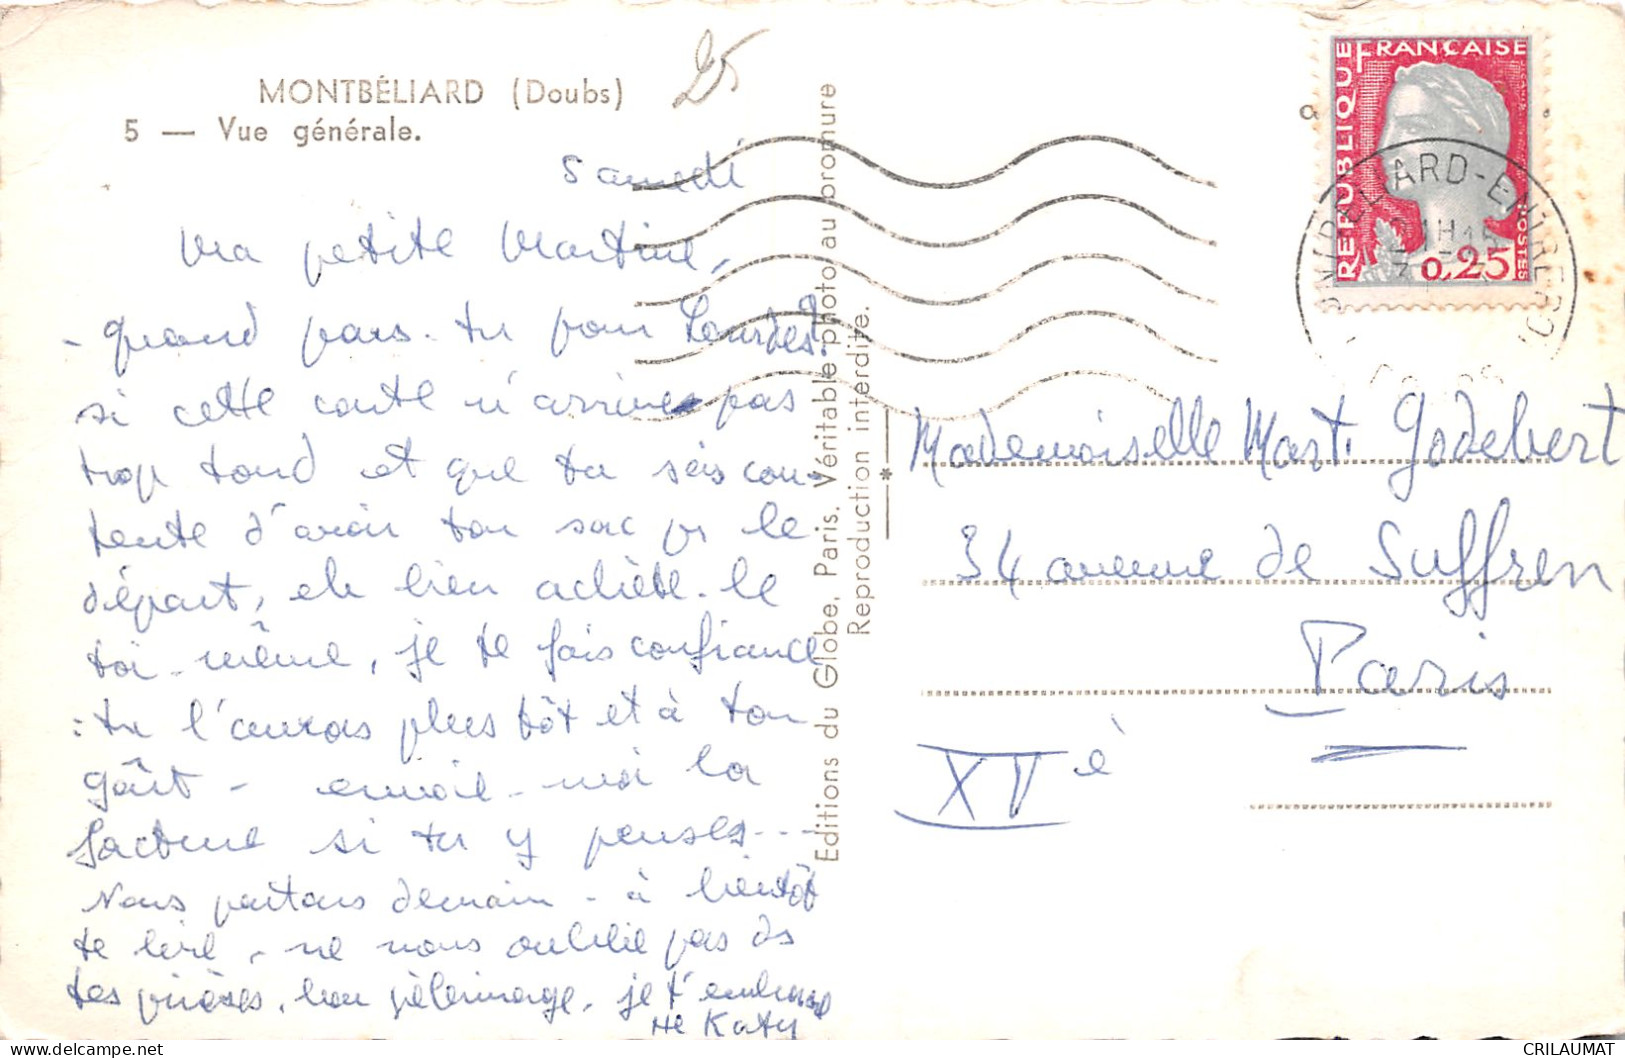 MONTBÉLIARD (Doubs)
5 — Vue générale.
25
Samedi
Ma petite Martine,
- quand pars-tu pour Lourdes?
si cette carte n'arrive pas
trop tard et que tu sois con-
tente d'avoir ton sac pr le
départ, eh bien achète-le
toi-même, je te fais confiance
: tu l'auras plus tôt et à ton
goût - envoie-moi la
facture si tu y penses...
Nous partons demain - à bientôt
te lire, ne nous oublie pas ds
tes prières, bon pèlerinage, je t'embrasse
Katy
Editions du Globe, Paris. Véritable photo au bromure
Reproduction interdite.
REPUBLIQUE FRANÇAISE
POSTES
0,25
Mademoiselle Mart. Godebert
34 avenue de Suffren
Paris
XV è
CRILAUMAT